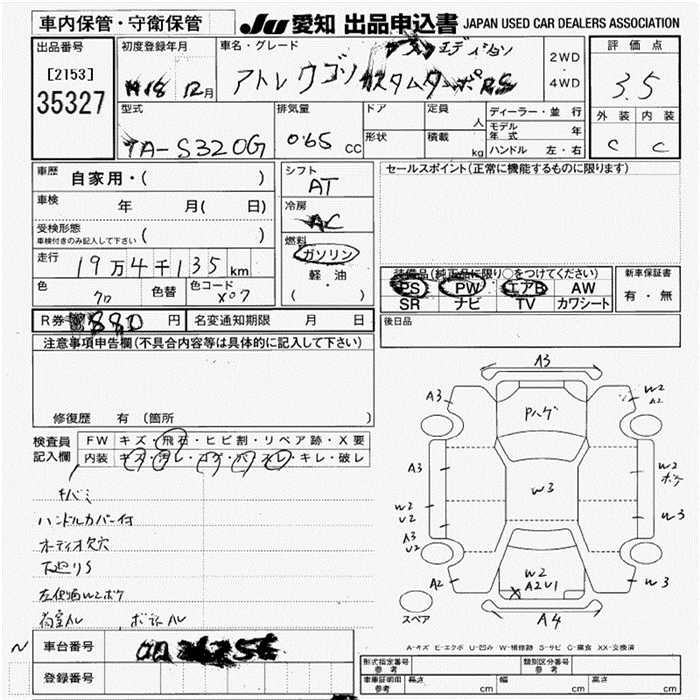 車内保管・守衛保管
JU 愛知 出品申込書 JAPAN USED CAR DEALERS ASSOCIATION
出品番号
[2153]
35327
初度登録年月
H18 12月
車名・グレード
エディション
アトレーワゴン カスタムターボRS
2WD
・
4WD
評価点
3.5
外装 内装
C C
型式
TA-S320G
排気量
0.65 CC
ドア
形状
定員 人
積載 kg
ディーラー・並行
モデル年式 年
ハンドル 左・右
車歴 自家用・( )
車検 年 月( 日)
受検形態
車検付きのみ記入して下さい ( )
走行 19万4千135km
色 クロ 色替 色コード X07
シフト
AT
冷房
AC
燃料
ガソリン
軽・油
( )
セールスポイント(正常に機能するものに限ります)
装備品(純正品に限り○をつけてください)
PS PW エアB AW
SR ナビ TV カワシート
新車保証書
有・無
R券 880 円 名変通知期限 月 日
後日品
注意事項申告欄(不具合内容等は具体的に記入して下さい)
修復歴 有(箇所 )
検査員
記入欄
FW キズ・飛石・ヒビ割・リペア跡・X要
内装 キズ・汚レ・コゲ・穴・スレ・キレ・破レ
キバミ
ハンドルカバー付
オーディオ欠穴
下廻りS
左側面W2ボケ
荷室AL ボディAL
A3
A3
Pハゲ
W2
A2
A3
W2
ボケ
W3
W2
U2
W3
A3
U2
A2
W2
A2U1
W3
A4
スペア
A-キズ E-エクボ U-凹み W-補修跡 S-サビ C-腐食 XX-交換済
車台番号
登録番号
形式指定番号
参考
類別区分番号
参考
車庫証明用
参考
長さ cm 幅 cm 高さ cm